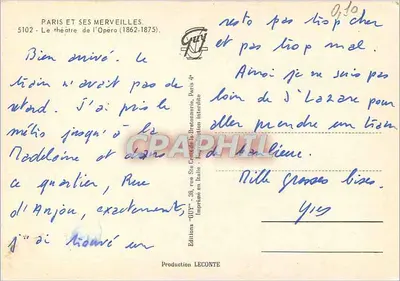 PARIS ET SES MERVEILLES.
5102 - Le théâtre de l'Opéra (1862-1875).
Bien arrivé. Le
train n'avait pas de
retard. J'ai pris le
métro jusqu'à la
Madeleine et dans
ce quartier, Rue
d'Anjou, exactement,
j'ai trouvé un
GUY
Editions "GUY" - 39, rue Ste Croix de la Bretonnerie, Paris 4e
Imprimé en Italie - Reproduction interdite
CPAPHIL
0,30
resto pas trop cher
et pas trop mal.
Ainsi je ne suis pas
loin de St Lazare pour
aller prendre un train
de banlieue.
Mille grosses bises.
Yves
Production LECONTE